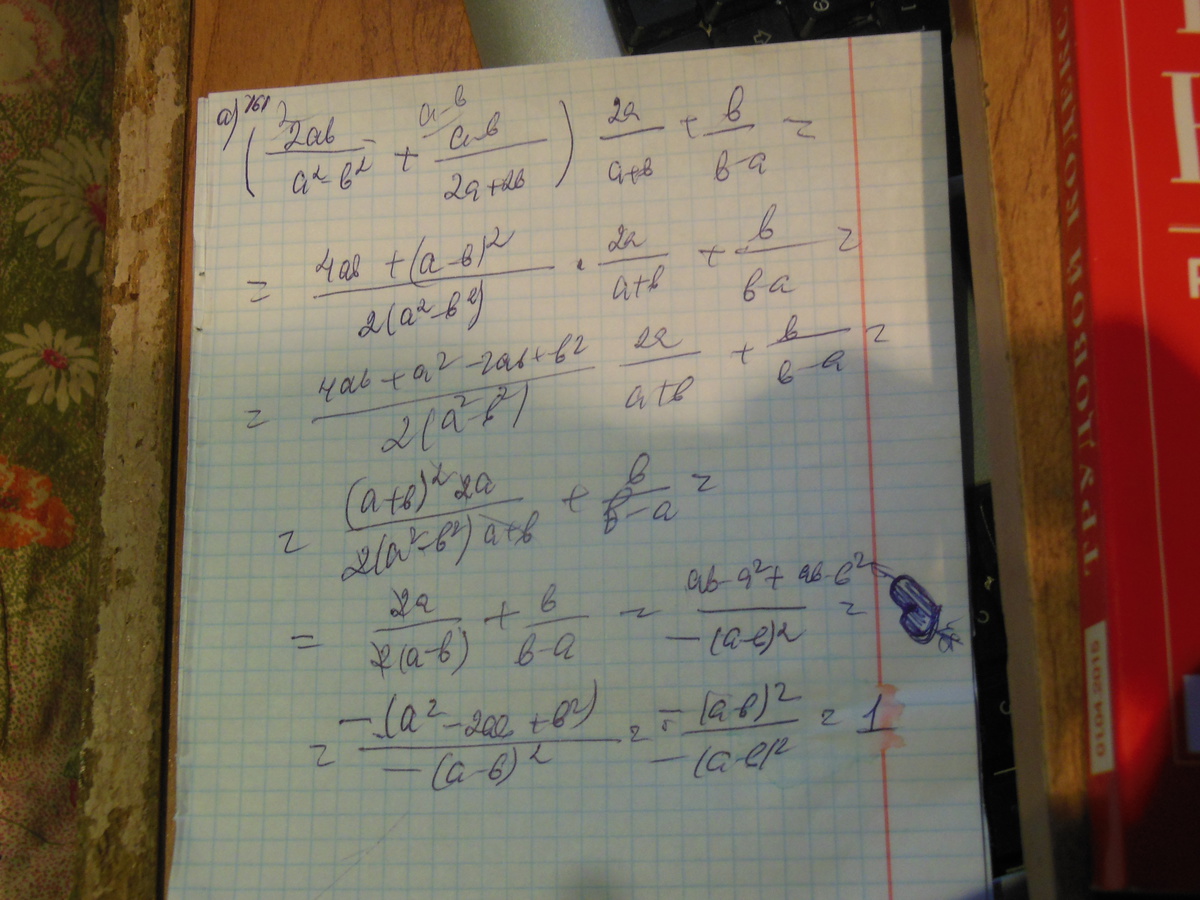 а) 761
(2ab/a²-b² + a-b/2a+2b) 2a/a+b + b/b-a =
= 4ab + (a-b)²/2(a²-b²) · 2a/a+b + b/b-a =
= 4ab + a² - 2ab + b²/2(a²-b²) 2a/a+b + b/b-a =
= (a+b)² 2a/2(a²-b²) a+b + b/b-a =
= 2a/2(a-b) + b/b-a = ab-a²+ab-b²/-(a-b)² =
= -(a²-2ab+b²)/-(a-b)² = -(a-b)²/-(a-b)² = 1
01.04.2015